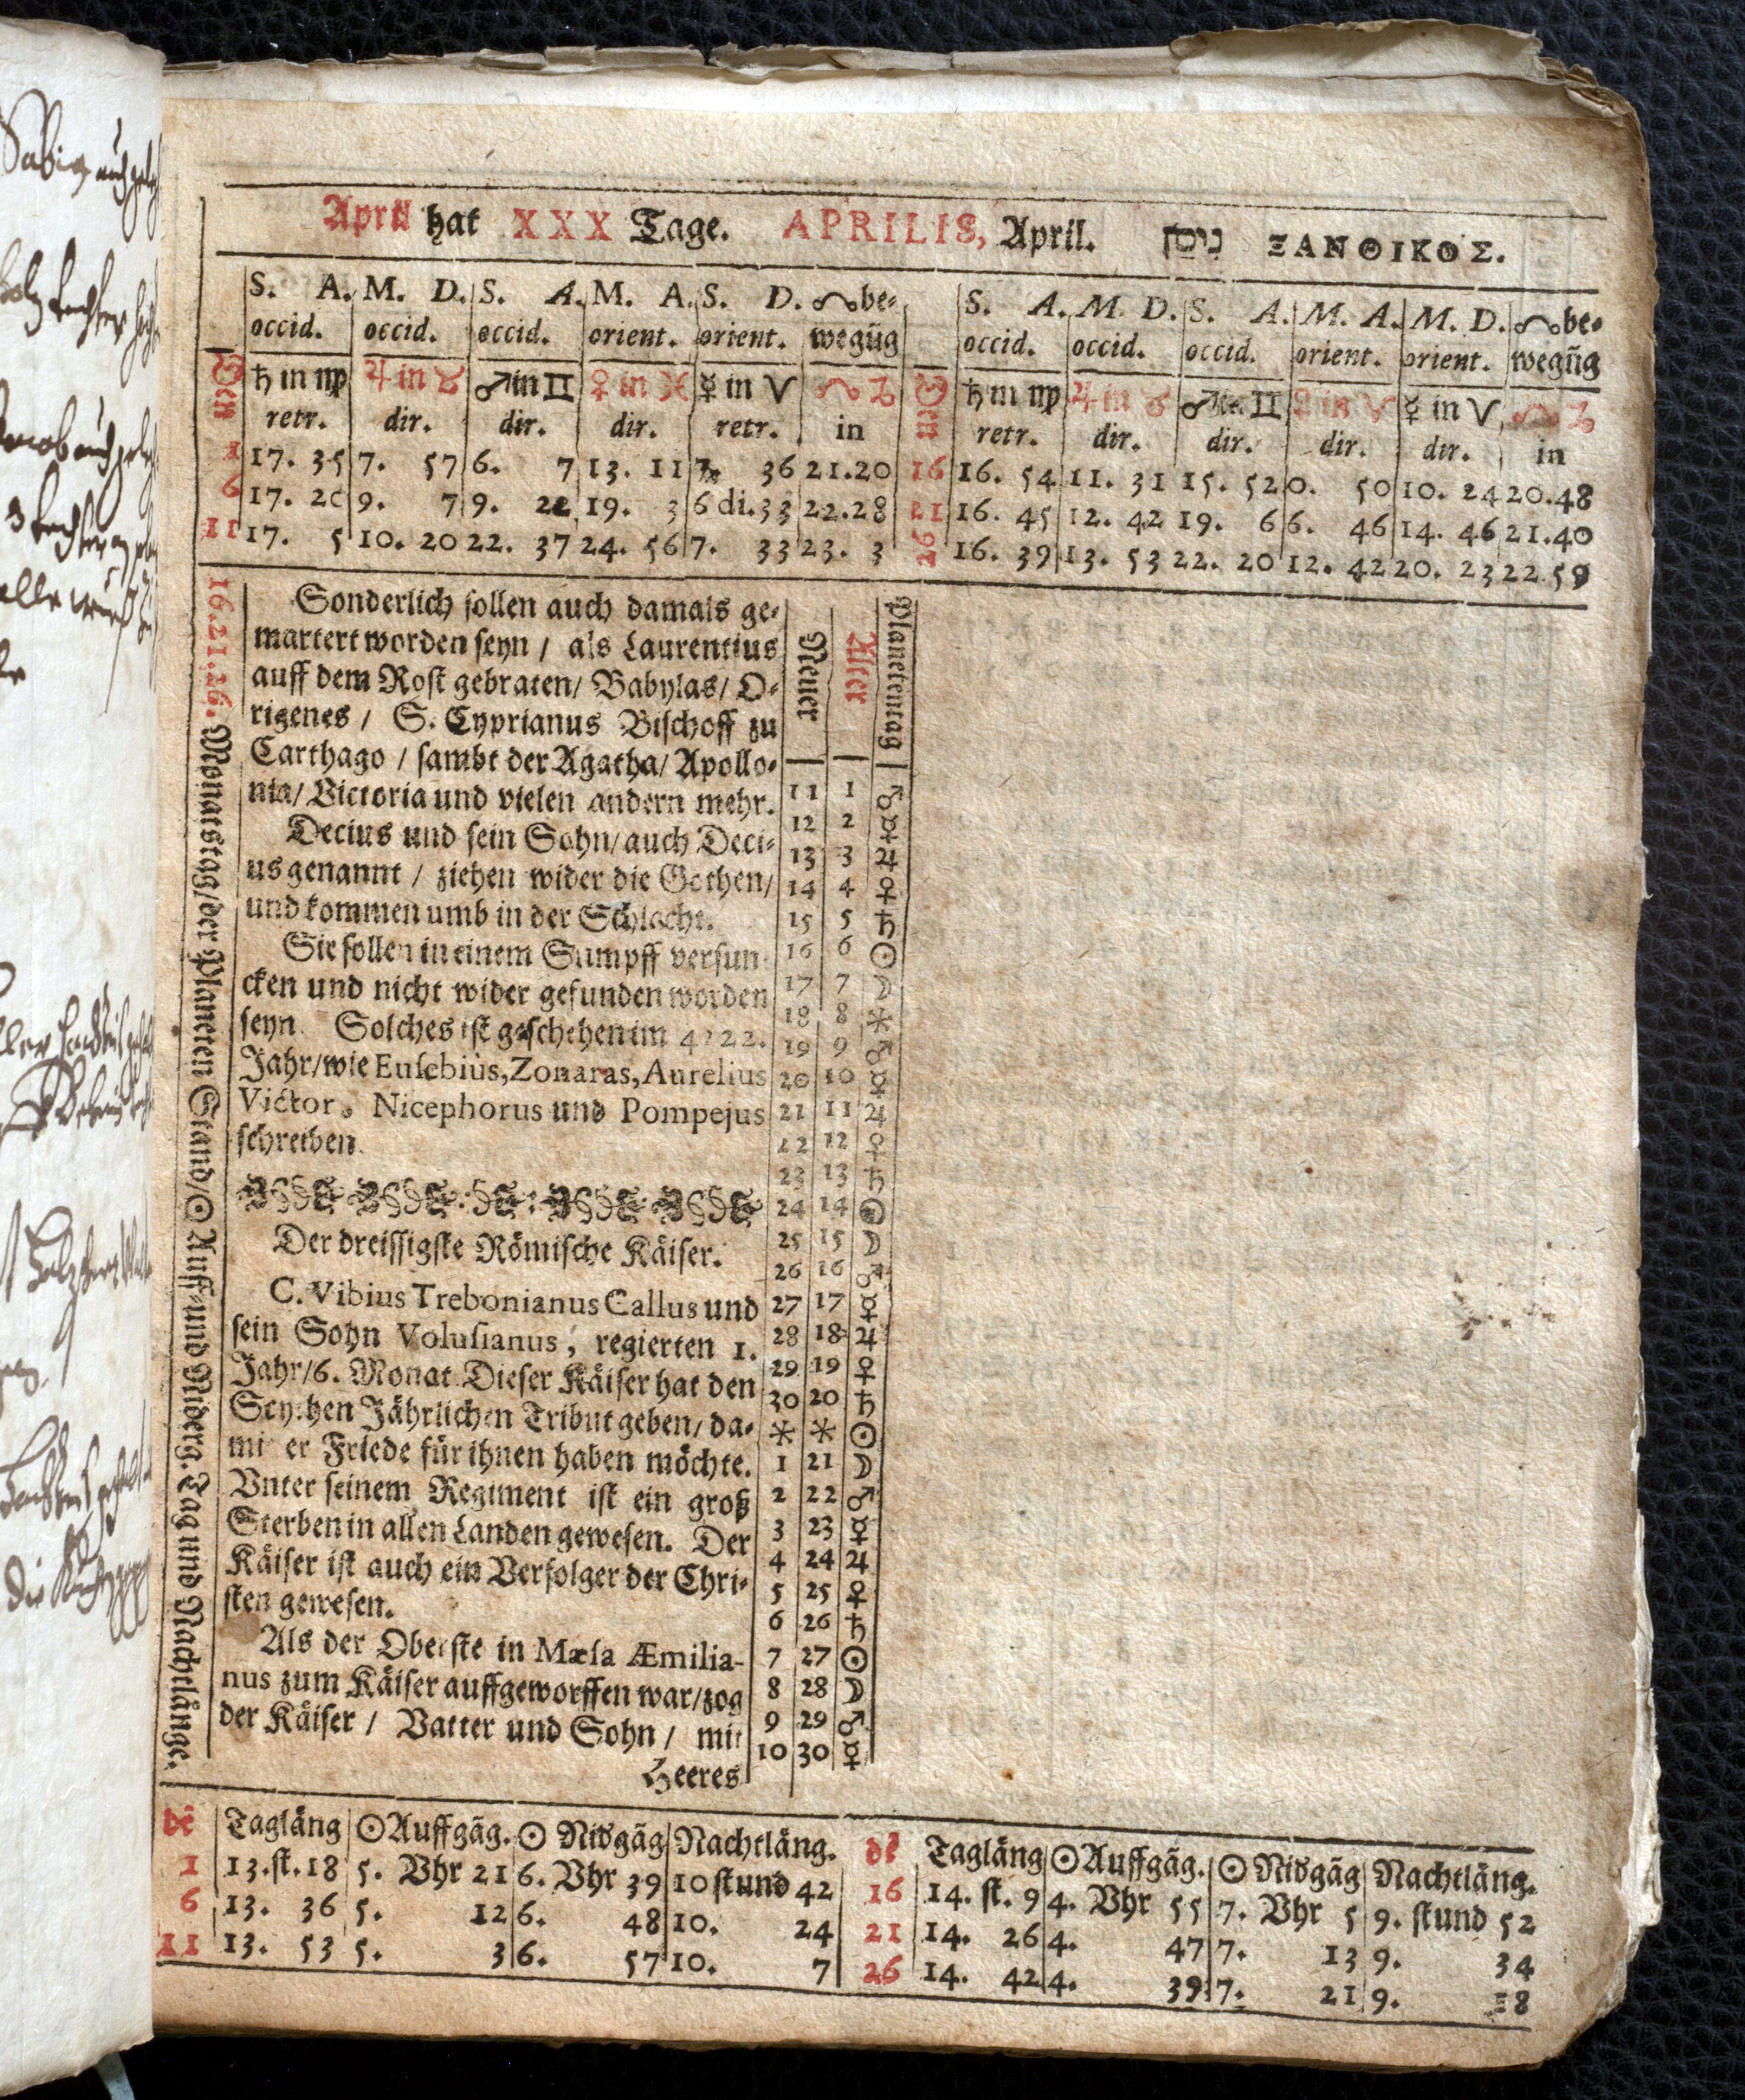 April hat XXX Tage. APRILIS, April. ניסן ΞΑΝΘΙΚΟΣ.
S. A. M. D. S. A. M. A. S. D. ☊be-
occid. occid. occid. orient. orient. wegūg
Den ♄ in ♍ ♃ in ♉ ♂ in ♊ ♀ in ♓ ☿ in ♈ ☊ ♑
retr. dir. dir. dir. retr. in
1 17. 35 7. 57 6. 7 13. 11 7. 36 21.20
6 17. 20 9. 7 9. 22 19. 3 6 di.33 22.28
11 17. 5 10. 20 22. 37 24. 56 7. 33 23. 3
S. A. M. D. S. A. M. A. M. D. ☊be-
occid. occid. occid. orient. orient. wegūg
Den ♄ in ♍ ♃ in ♉ ♂ in ♊ ♀ in ♈ ☿ in ♈ ☊ ♑
retr. dir. dir. dir. dir. in
16 16. 54 11. 31 15. 52 0. 50 10. 24 20.48
21 16. 45 12. 42 19. 6 6. 46 14. 46 21.40
26 16. 39 13. 53 22. 20 12. 42 20. 23 22 59
16.21.26. Monatstag/der Planeten Stand/☉ Auff-und Niderg. Tag und Nachtlånge.
Sonderlich sollen auch damals ge-
martert worden seyn / als Laurentius
auff dem Rost gebraten/ Babylas/ O-
rigenes / S. Cyprianus Bischoff zu
Carthago / sambt der Agatha/ Apollo-
nia/ Victoria und vielen andern mehr.
Decius und sein Sohn/auch Deci-
us genannt / ziehen wider die Gothen/
und kommen umb in der Schlacht.
Sie sollen in einem Sumpff versun-
cken und nicht wider gefunden worden
seyn Solches ist geschehen im 4222.
Jahr/wie Eusebius, Zonaras, Aurelius
Victor. Nicephorus und Pompejus
schreiben.
Der dreissigste Römische Käiser.
C. Vibius Trebonianus Gallus und
sein Sohn Volusianus, regierten 1.
Jahr/6. Monat. Dieser Käiser hat den
Scythen Jährlichen Tribut geben/ da-
mit er Friede für ihnen haben möchte.
Vnter seinem Regiment ist ein groß
Sterben in allen Landen gewesen. Der
Käiser ist auch ein Verfolger der Chri-
sten gewesen.
Als der Oberste in Mœsa Æmilia-
nus zum Käiser auffgeworffen war/zog
der Käiser / Vatter und Sohn / mit
Heeres
Neuer Alter Planetentag
11 1 ♂
12 2 ☿
13 3 ♃
14 4 ♀
15 5 ♄
16 6 ☉
17 7 ☽
18 8 ✳
19 9 ♂
20 10 ☿
21 11 ♃
22 12 ♀
23 13 ♄
24 14 ☉
25 15 ☽
26 16 ♂
27 17 ☿
28 18 ♃
29 19 ♀
30 20 ♄
✳ ✳ ☉
1 21 ☽
2 22 ♂
3 23 ☿
4 24 ♃
5 25 ♀
6 26 ♄
7 27 ☉
8 28 ☽
9 29 ♂
10 30 ☿
dē Tagläng ☉Auffgāg. ☉ Nidgāg Nachtläng.
1 13.st.18 5. Vhr 21 6. Vhr 39 10 stund 42
6 13. 36 5. 12 6. 48 10. 24
11 13. 53 5. 3 6. 57 10. 7
dē Tagläng ☉Auffgāg. ☉ Nidgāg Nachtläng.
16 14. st. 9 4. Vhr 55 7. Vhr 5 9. stund 52
21 14. 26 4. 47 7. 13 9. 34
26 14. 42 4. 39 7. 21 9. 18